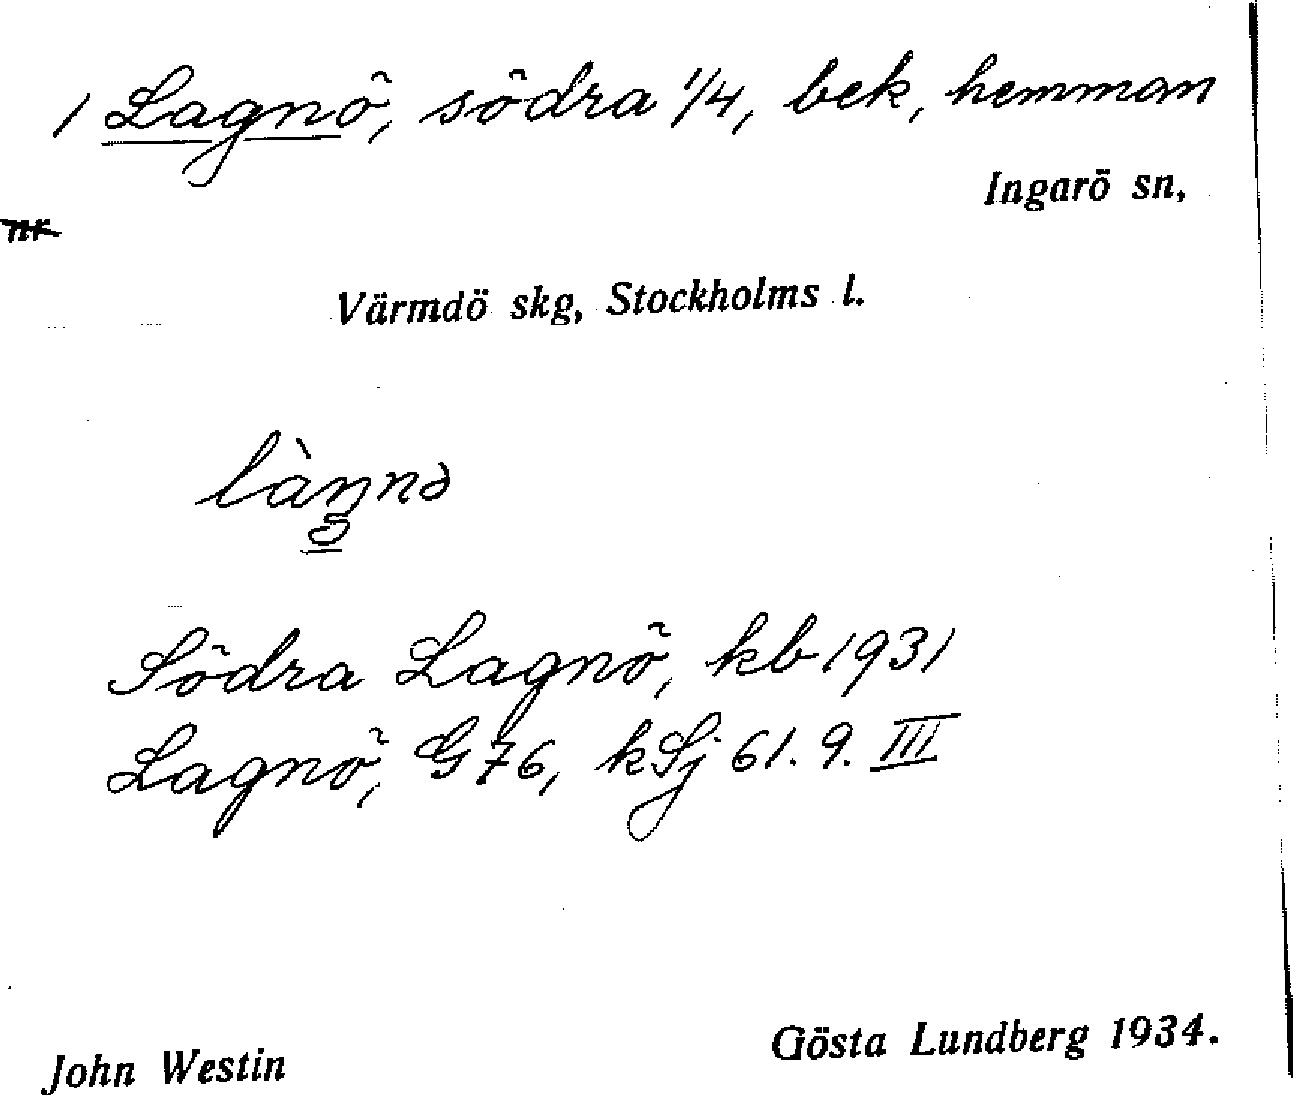 1 Lagnö, södra 1/4, bek, hemman
Ingarö sn,
Värmdö skg, Stockholms l.
Södra Lagnö, kb 1931
Lagnö, G 76, kSj 61. 9. III
Gösta Lundberg 1934.
John Westin